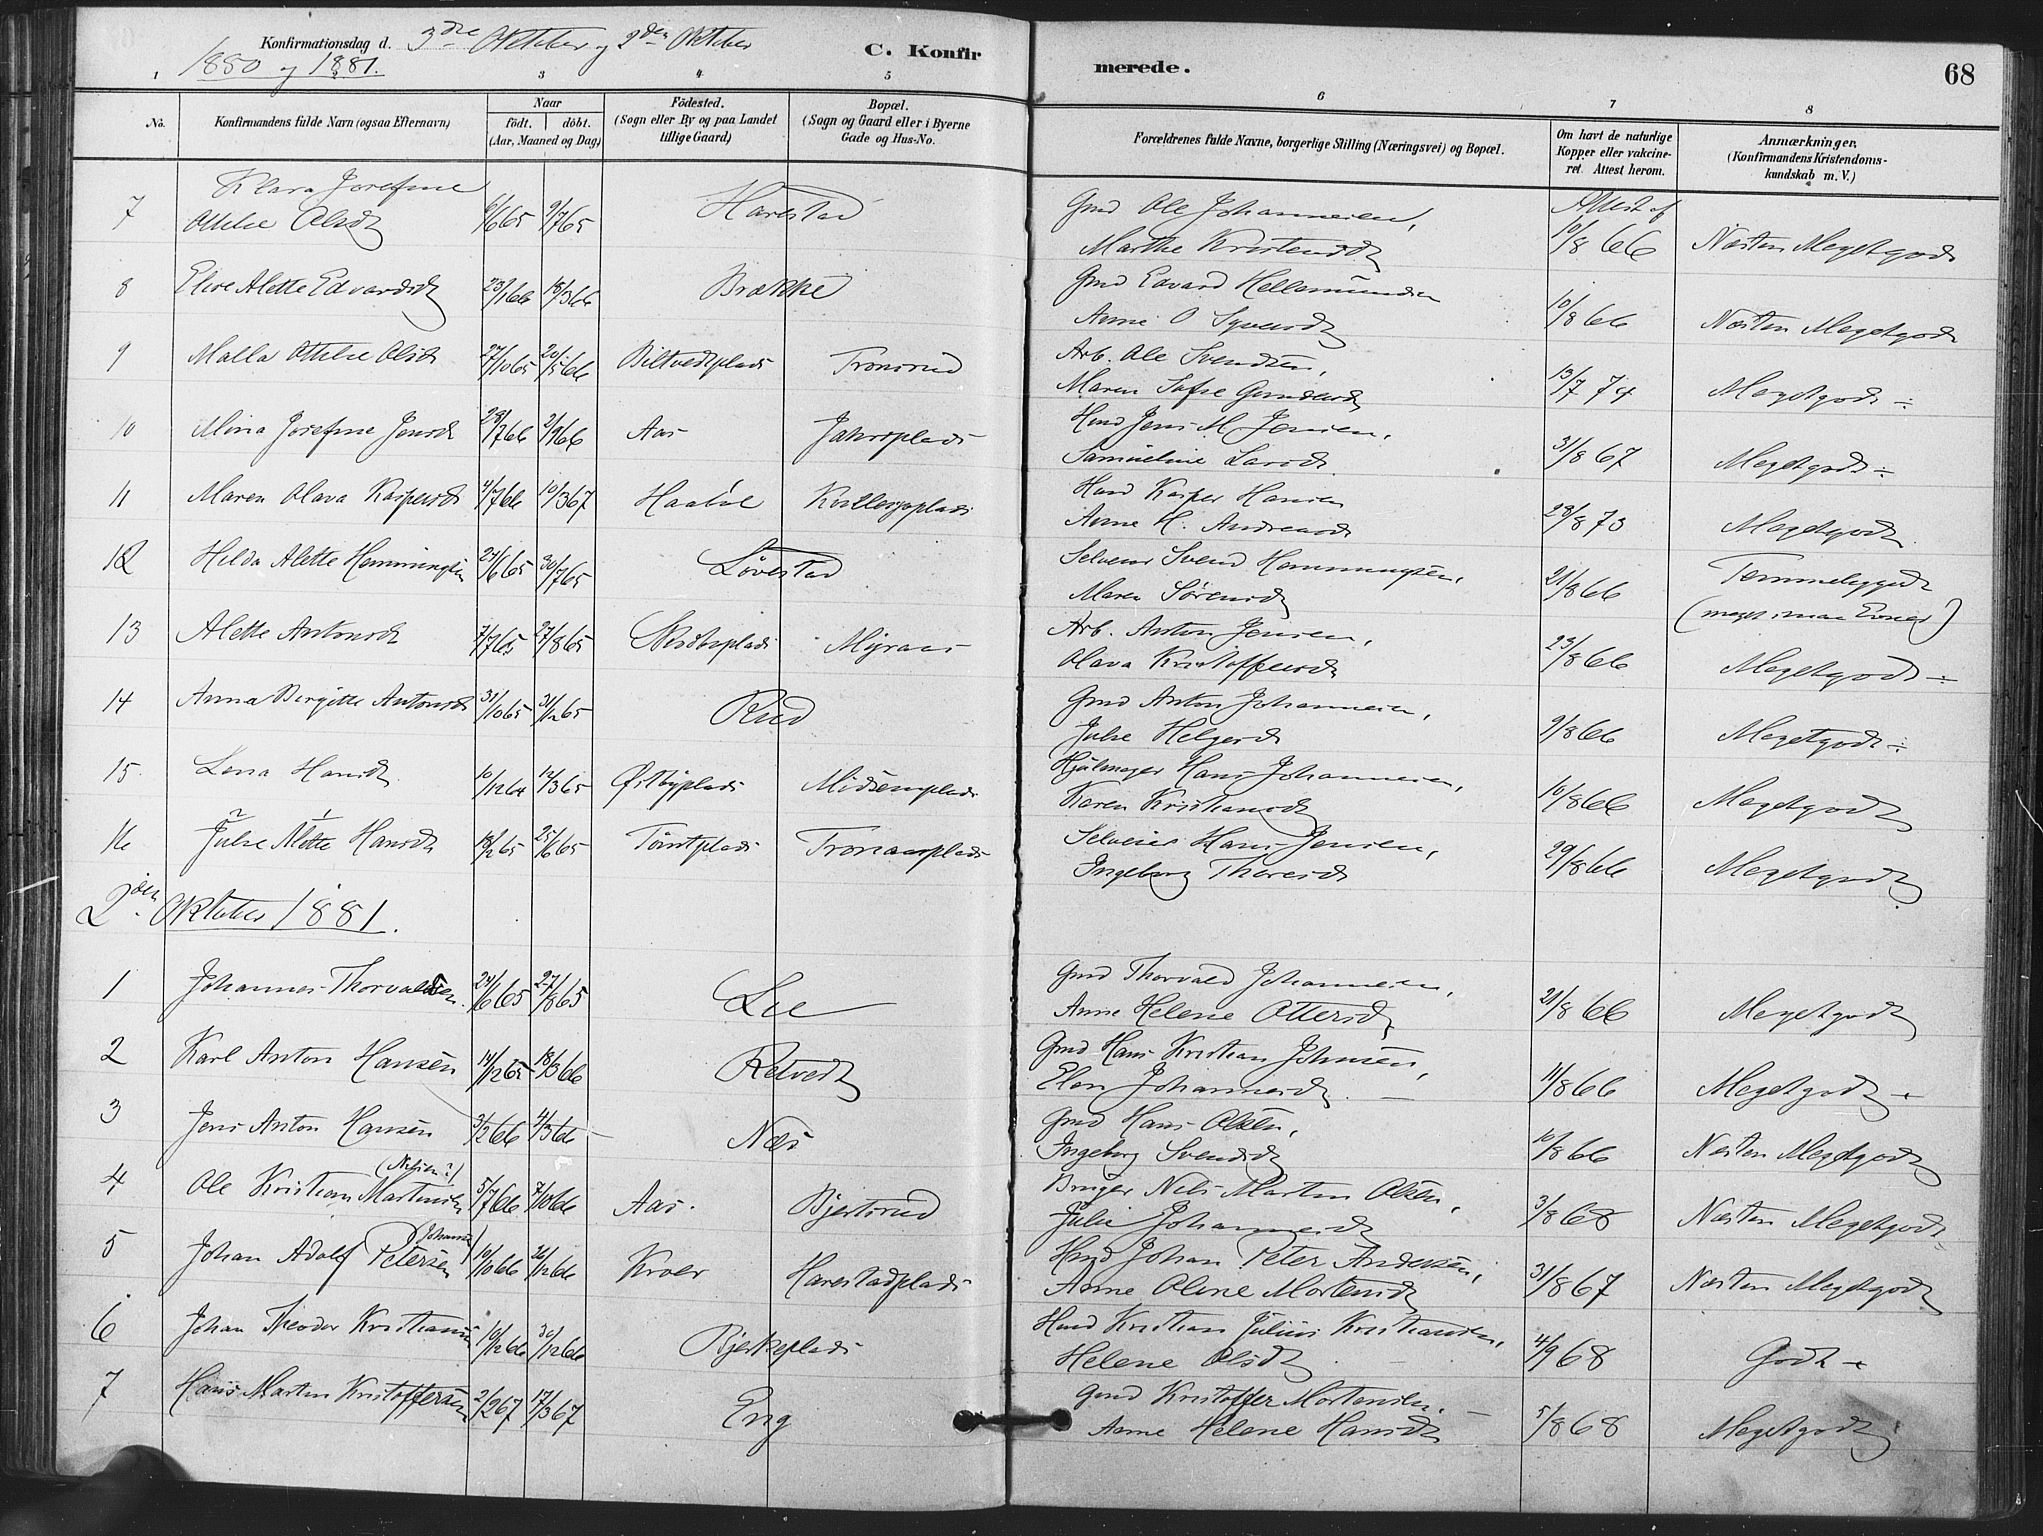 Konfirmationsdag d. 3die Oktober og 2den Oktober
1880 og 1881.
C. Konfirmerede.
68
1 3 4 5 6 7 8
No. Konfirmandens fulde Navn (ogsaa Efternavn) Naar født. døbt. (Aar, Maaned og Dag) Fødested. (Sogn eller By og paa Landet tillige Gaard) Bopæl. (Sogn og Gaard eller i Byerne Gade og Hus-No. Forældrenes fulde Navne, borgerlige Stilling (Næringsvei) og Bopæl. Om havt de naturlige Kopper eller vakcineret. Attest herom. Anmærkninger. (Konfirmandens Kristendomskundskab m.V.)
Klara Josefine Gmd Ole Johannesen, Attest af
7 Ottilie Olsdt 6/6 65 9/7 65 Harestad Marthe Kristensdt 10/8 66 Næsten Megetgodt
8 Elise Alette Edvardsdt 23/1 66 18/3 66 Brække Gmd Edvard Hellesmundsen
Anne O 10/8 66 Næsten Megetgodt
9 Malla Ottilie Olsdt 27/10 65 20/5 66 Biltvedtplads Tronsrud Arb. Ole Svendsen,
Maren Sofie Gundersdt 13/7 74 Megetgodt ÷
10 Mina Josefine Jensdt 28/7 66 2/9 66 Aas Jahrsplads Hmd Jens M Jensen,
Samueline Larsdt. 31/8 67 Megetgodt ÷
11 Maren Olava Kaspersdt 4/7 66 10/3 67 Haabøl Hmd Kasper Hansen
Anne H. Andreasdt 28/8 73 Megetgodt
12 Hilda Alette Hemmingsen 24/6 65 30/7 65 Løvestad Selveier Svend Hemmingsen,
Maren Sørensdt 21/8 66 Temmeliggodt
13 Alette Antonsdt 7/7 65 27/8 65 Skidtsplads Myraas Arb. Anton Jensen,
Olava Kristoffersdt 23/8 66 Megetgodt ÷
14 Anna Birgitte Antonsdt 31/10 65 31/12 65 Rud Gmd Anton Johannesen,
Julie Helgesdt 9/8 66 Megetgodt ÷
15. Lena Hansdt 10/12 64 12/3 65 Østbyplads Midsemplads Hjulmager Hans Johannesen,
Karen Kristiansdt 10/8 66 Megetgodt
16 Julie Alette Hansdt 18/2 65 25/6 65 Tomtplads Tronaasplads Selveier Hans Jensen,
Ingeborg Thoresdt 29/8 66 Megetgodt
2den Oktober 1881.
1 Johannes Thorvaldsen. 24/6 65 27/8 65 Lie Gmd Thorvald Johannesen,
Anne Helene Ottersdt, 21/8 66 Megetgodt
2 Karl Anton Hansen 14/12 65 18/3 66 Retvedt Gmd Hans Kristian Johnsen,
Elen Johannesdt. 11/8 66 Megetgodt
3 Jens Anton Hansen 3/2 66 4/3 66 Næs Gmd Hans Olsen,
Ingeborg Svendsdt 10/8 66 Næsten Megetgodt
(Nilsen?)
4 Ole Kristian Martinsen 5/7 66 7/10 66 Aas. Bjertsrud Bruger Nils Martin Olsen,
Julie Johannesdt 3/8 68 Næsten Megetgodt
5 Johan Adolf Petersen 10/10 66 26/12 66 Kroer Harestadplads Hmd Johan Peter Andersen,
Anne Oline Mortensdt 31/8 67 Næsten Megetgodt
6 Johan Theodor Kristiansen 10/12 66 30/12 66 Bjerkeplads Hmd Kristian Julius Kristiansen,
Helene Olsdt 4/9 68 Godt
7 Hans Martin Kristoffersen 2/2 67 17/3 67 Eng Gmd Kristoffer Mortensen.
Anne Helene Hansdt 5/8 68 Megetgodt